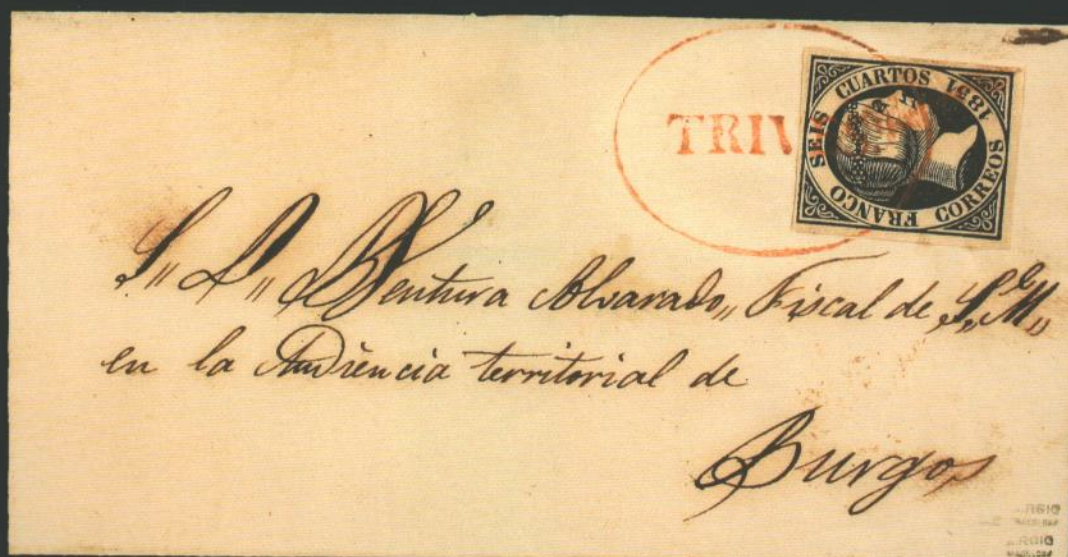 TRIV
SEIS CUARTOS 1851
FRANCO CORREOS
S,, D,, Ventura Alvarado,, Fiscal de S,,M,,
en la Audiencia territorial de
Burgos